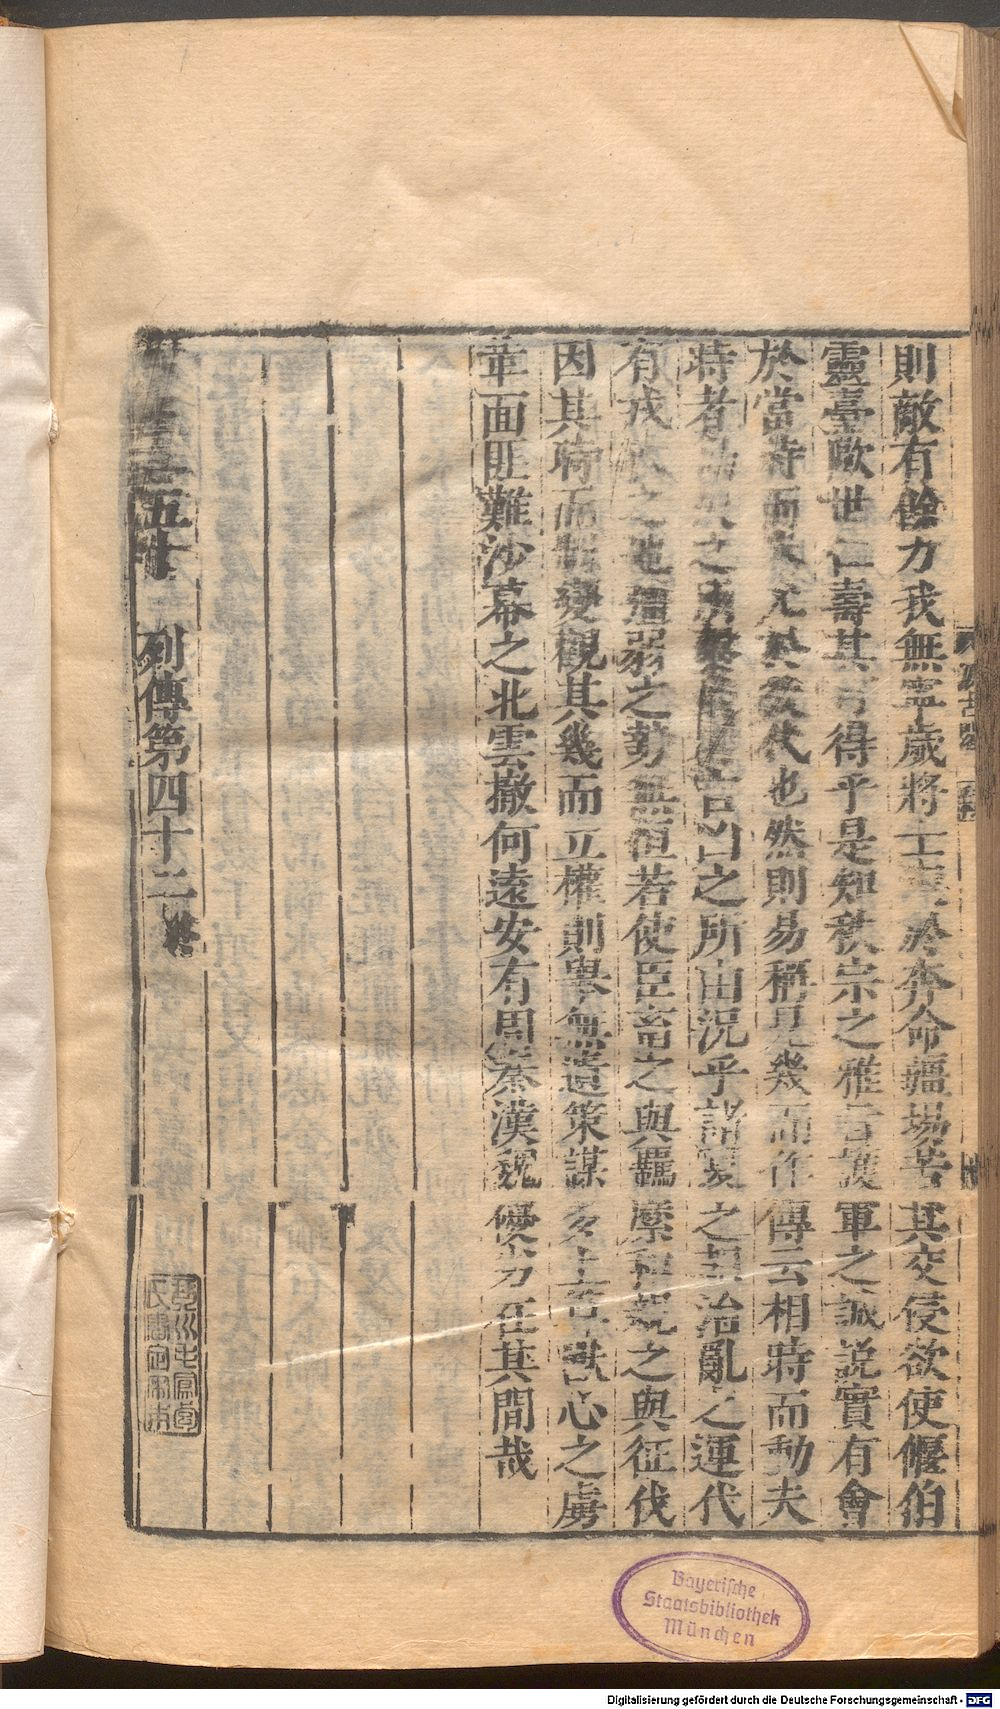 則敵有餘力我無寧歲將士疲於奔命疆場苦其交侵欲使偃伯
靈臺歐世仁壽其可得乎是知秩宗之雅旨護軍之誠說實有會
於當時而未允於後代也然則易稱見幾而作傳云相時而動夫
時者之所吉凶之所由況乎諸夏之朝治亂之運代
有戎狄之地彊弱之勢無恒若使臣畜之與羈縻和親之與征伐
因其時而制變觀其幾而立權則舉無遺策謀多上算獸心之虜
革面匪難沙幕之北雲撤何遠安有周秦漢魏優劣在其間哉
列傳第四十二
五十
汲古閣
Bayerische
Staatsbibliothek
München
Digitalisierung gefördert durch die Deutsche Forschungsgemeinschaft - DFG